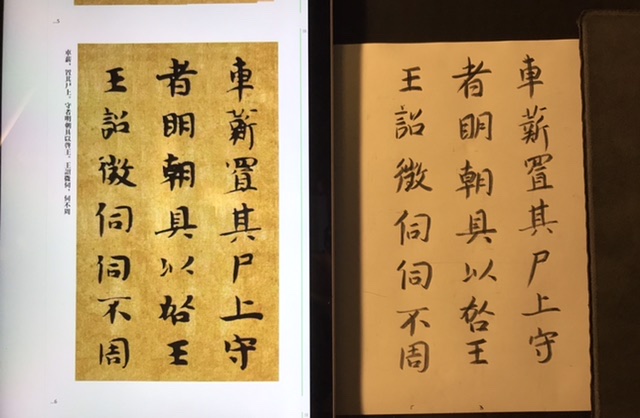 車薪置其尸上守
者明朝具以啓王
王詔微伺伺不周
車薪，置其尸上。守者明朝具以啓王。王詔微伺，伺不周
車薪置其尸上守
者明朝具以啓王
王詔微伺伺不周